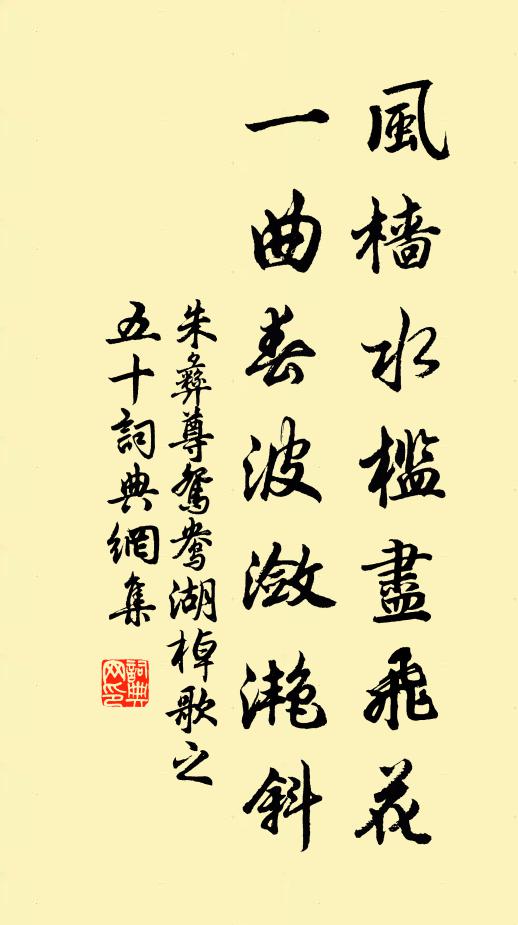 風檣水檻盡飛花
一曲春波瀲灧斜
朱彝尊鴛鴦湖棹歌之
五十詞典網集
詞典网印